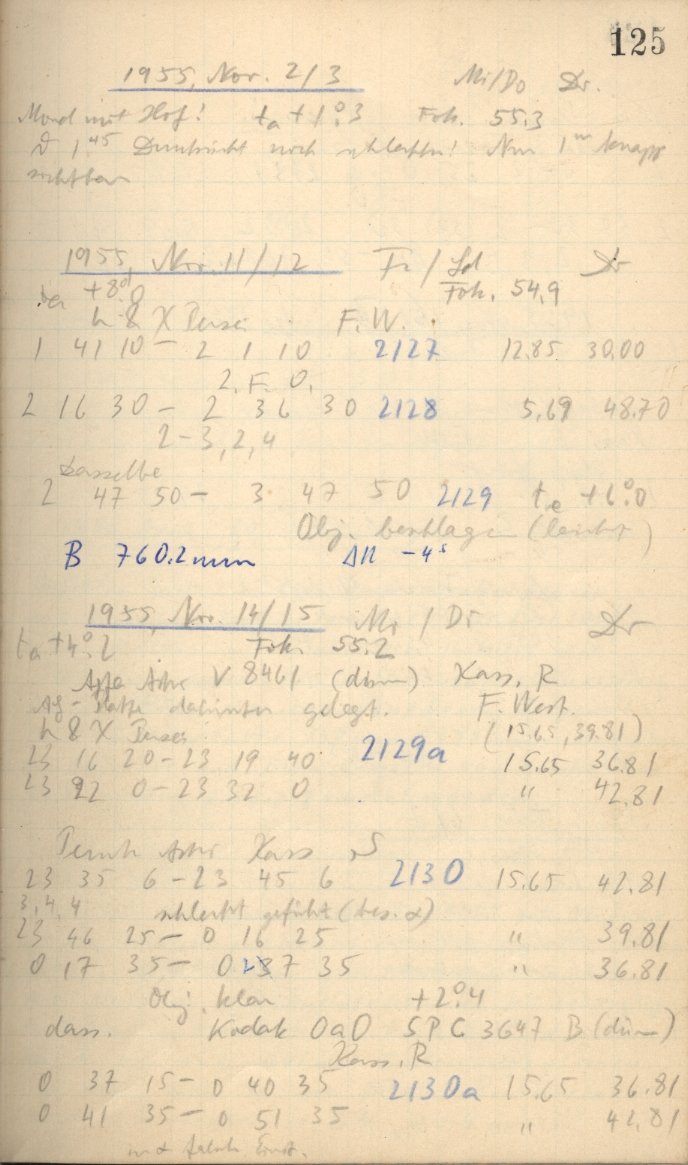 125
1955, Nov. 2/3 Mi/Do Dr.
Mond mit Hof! ta +1°.3 Fok. 55.3
1.45 Durchsicht noch schlechter! Nur 1m knapp
sichtbar
1955, Nov. 11/12 Fr/Sd Dr
ta +8°.0 Fok. 54,9
h & X Persei F.W.
1 41 10 - 2 1 10 2127 12.85 30.00
2. F. 0.
2 16 30 - 2 36 30 2128 5.69 48.70
2-3, 2, 4
Dasselbe
2 47 50 - 3 47 50 2129 te +6°.0
Obj. beschlagen (leicht)
B 760.2 mm -4s
1955, Nov. 14/15 Mo/Di Dr
ta +4°.2 Fok. 55.2
Agfa Astro V 8461 (dünn) Kass. R
Platte dahinter gelegt. F. West.
h & X Persei (15.65, 39.81)
23 16 20 - 23 19 40 2129a 15.65 36.81
23 22 0 - 23 32 0 " 42.81
Perutz Astro Kass S
23 35 6 - 23 45 6 2130 15.65 42.81
3, 4, 4 schlecht geführt (bes. α)
23 46 25 - 0 16 25 " 39.81
0 17 35 - 0 37 35 " 36.81
Obj. klar +2°.4
dass. Kodak OaO SPC 3647 B (dünn)
Kass. R
0 37 15 - 0 40 35 2130a 15.65 36.81
0 41 35 - 0 51 35 " 42.81